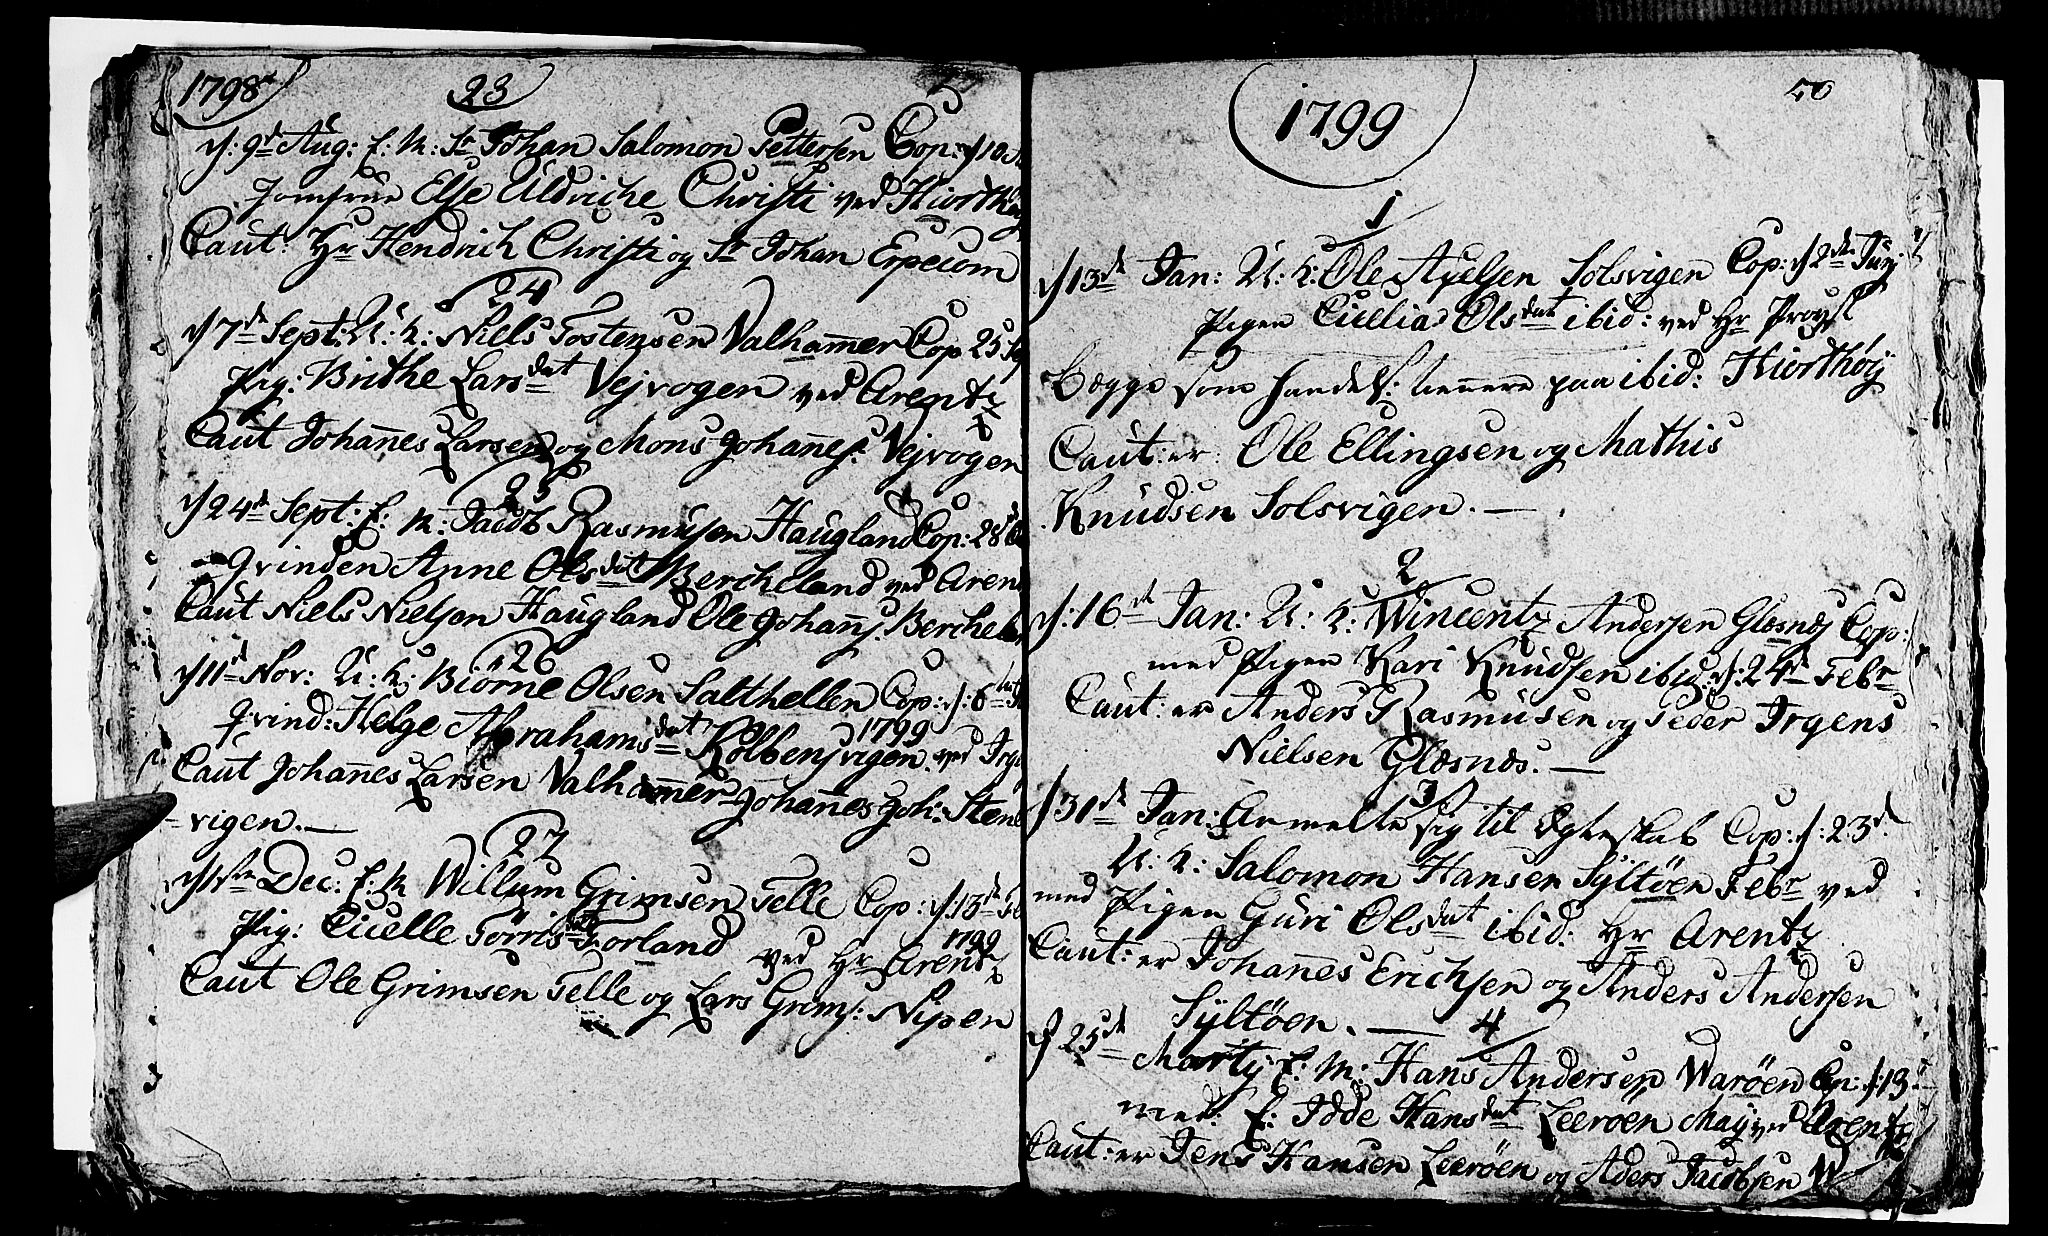 1798
23
d: 9d Aug: E: M: Sr Johan Salomon Pettersen Cop: d 10
Jomfrue Else Uldriche Christi ved Hiorthøy
Caut: Hr Hendrich Christi og Sr Johan Erpecom
24
d 7de Sept: U: K: Niels Tostensen Valhamer Cop 25
Pig: Brithe Larsdat Vejvogen ved Arentz
Caut Johanes Larsen og Mons Johanes: Vejvogen
25
d 24d Sept: E: M: Jacob Rasmusen Haugland Cop: 28
Qvinden Anne Olsdat Bercheland ved Aren
Caut Niels Nielsen Haugland Ole Johans: Berchel
26
d 11d Nov: U: K: Biørne Olsen Salthellen Cop: d: 6
Qvind: Helge Abrahamsdat Kolbensvigen ved Irg
1799
Caut Johanes Larsen Valhamer Johanes Joh: Sten
-vigen.
27
d 1ste Dec: E: M Willum Grimsen Telle Cop: d: 13de Fe
Pig: Cicelle Tørrisdat Torland ved Hr Arentz
1799
Caut Ole Grimsen Telle og Lars Grims: Nipen
50
1799
1
d 13de Jan: U: K: Ole Axelsen Solsvigen Cop: d 2den Juny
Pigen Cicelia Olsdat ibid: ved Hr Provst
begge som handels: tiennere paa ibid: Hiorthøy
Caut: er: Ole Ellingsen og Mathis
Knudsen Solsvigen.
2
d: 16de Jan: U: K: Wincentz Andersen Glesnes Cop:
med Pigen Kari Knudsen ibid: d: 24d Febr
Caut: er Anders Rasmusen og Peder Irgens
Nielsen Glesnes.
3
d 31de Jan: Anmelte sig til Egteskab Cop: d: 23d.
U: K: Salomon Hansen Syltøen Febr ved
med Pigen Guri Olsdat ibid: Hr Arentz
Caut: er Johanes Erichsen og Anders Andersen
Syltøen.
4
d 25de Marty: E: M: Hans Andersen Warøen Cop: d: 13
med: E: Idde Hansdat Leerøen May ved Arentz
Caut: er Jens Hansen Leerøen og Aders Jacobsen W